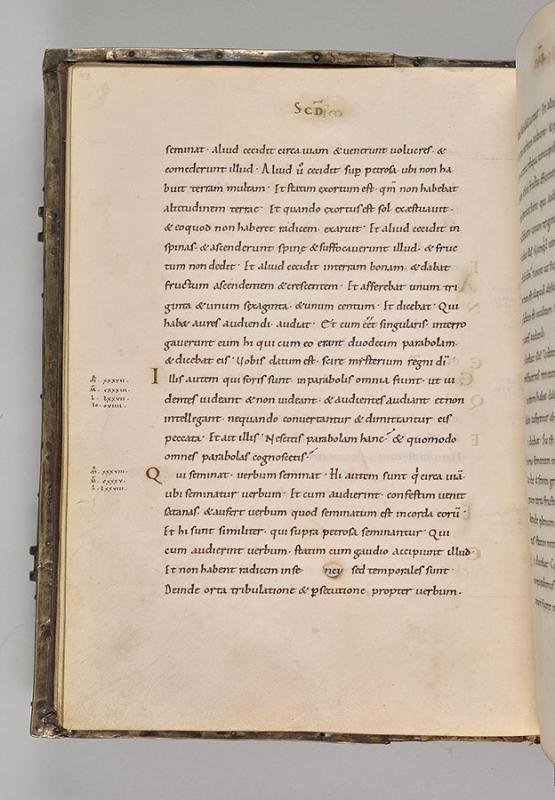 Scd̄m
seminat · aliud cecidit circa uiam · & uenerunt uolucres · &
comederunt illud · Aliud ū cecidit sup petrosa · ubi non ha
buit terram multam · Et statim exortum est · qm̄ non habebat
altitudinem terrae · Et quando exortus est sol · exaestuauit ·
& eo quod non haberet radicem · exaruit · Et aliud cecidit in
spinas · & ascenderunt spinę & suffocauerunt illud · & fruc
tum non dedit · Et aliud cecidit interram bonam · & dabat
fructum ascendentem & crescentem · Et afferebat unum tri
ginta & unum sexaginta · & unum centum · Et dicebat · Qui
hab& aures audiendi · audiat · Et cum eēt singularis · interro
gauerunt eum hi qui cum eo erant duodecim parabolam ·
& dicebat eis · Uobis datum est · scire mysterium regni dī ·
Illis autem qui foris sunt · in parabolis omnia fiunt · ut ui
dentes uideant & non uideant · & audientes audiant et non
intellegant · nequando conuertantur & dimittantur eis
peccata · Et ait illis · Nescitis parabolam hanc · & quomodo
omnes parabolas cognoscetis ·
Qui seminat · uerbum seminat · Hi autem sunt q circa uiā ·
ubi seminatur uerbum · Et cum audierint · confestim uenit
satanas · & aufert uerbum quod seminatum est in corda eorū ·
Et hi sunt similiter · qui supra petrosa seminantur · Qui
cum audierint uerbum · statim cum gaudio accipiunt illud ·
Et non habent radicem in se · sed temporales sunt ·
Deinde orta tribulatione & psecutione propter uerbum ·